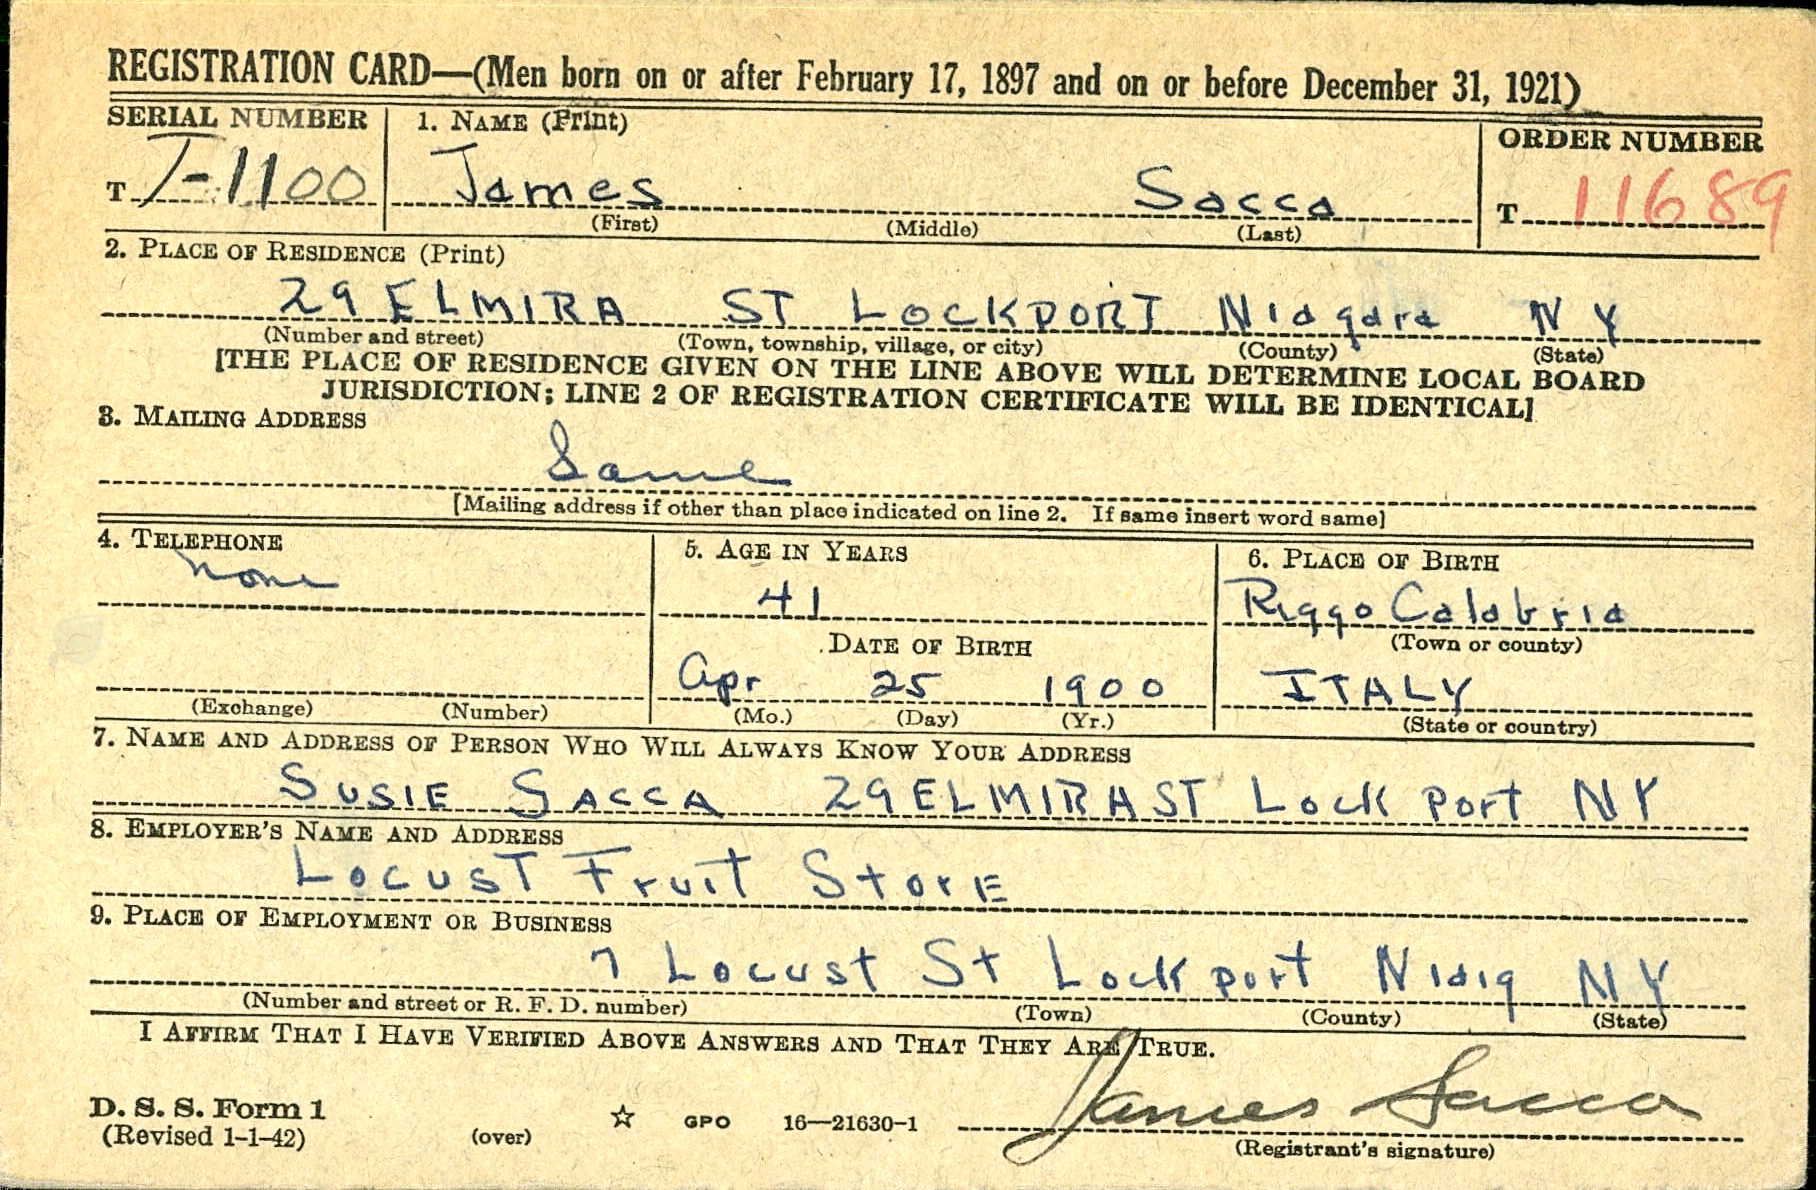 REGISTRATION CARD—(Men born on or after February 17, 1897 and on or before December 31, 1921)
SERIAL NUMBER
T T-1100
1. NAME (Print)
James Sacca
(First) (Middle) (Last)
ORDER NUMBER
T 11689
2. PLACE OF RESIDENCE (Print)
29 ELMIRA ST LOCKPORT Niagara NY
(Number and street) (Town, township, village, or city) (County) (State)
[THE PLACE OF RESIDENCE GIVEN ON THE LINE ABOVE WILL DETERMINE LOCAL BOARD
JURISDICTION; LINE 2 OF REGISTRATION CERTIFICATE WILL BE IDENTICAL]
3. MAILING ADDRESS
Same
[Mailing address if other than place indicated on line 2. If same insert word same]
4. TELEPHONE
none
(Exchange) (Number)
5. AGE IN YEARS
41
DATE OF BIRTH
Apr 25 1900
(Mo.) (Day) (Yr.)
6. PLACE OF BIRTH
Riggo Calabria
(Town or county)
ITALY
(State or country)
7. NAME AND ADDRESS OF PERSON WHO WILL ALWAYS KNOW YOUR ADDRESS
SUSIE SACCA 29 ELMIRA ST Lock port NY
8. EMPLOYER'S NAME AND ADDRESS
LOCUST Fruit StorE
9. PLACE OF EMPLOYMENT OR BUSINESS
7 Locust St Lock port Niag NY
(Number and street or R. F. D. number) (Town) (County) (State)
I AFFIRM THAT I HAVE VERIFIED ABOVE ANSWERS AND THAT THEY ARE TRUE.
D. S. S. Form 1
(Revised 1-1-42) (over) ☆ GPO 16—21630-1
James Sacca
(Registrant's signature)